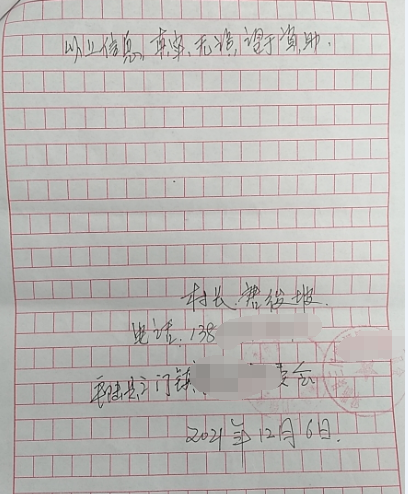 以上信息,真实,无误,望于资助.
村长:曹俊坡.
电话:138
平陆县三门镇 委会
2021年12月6日.